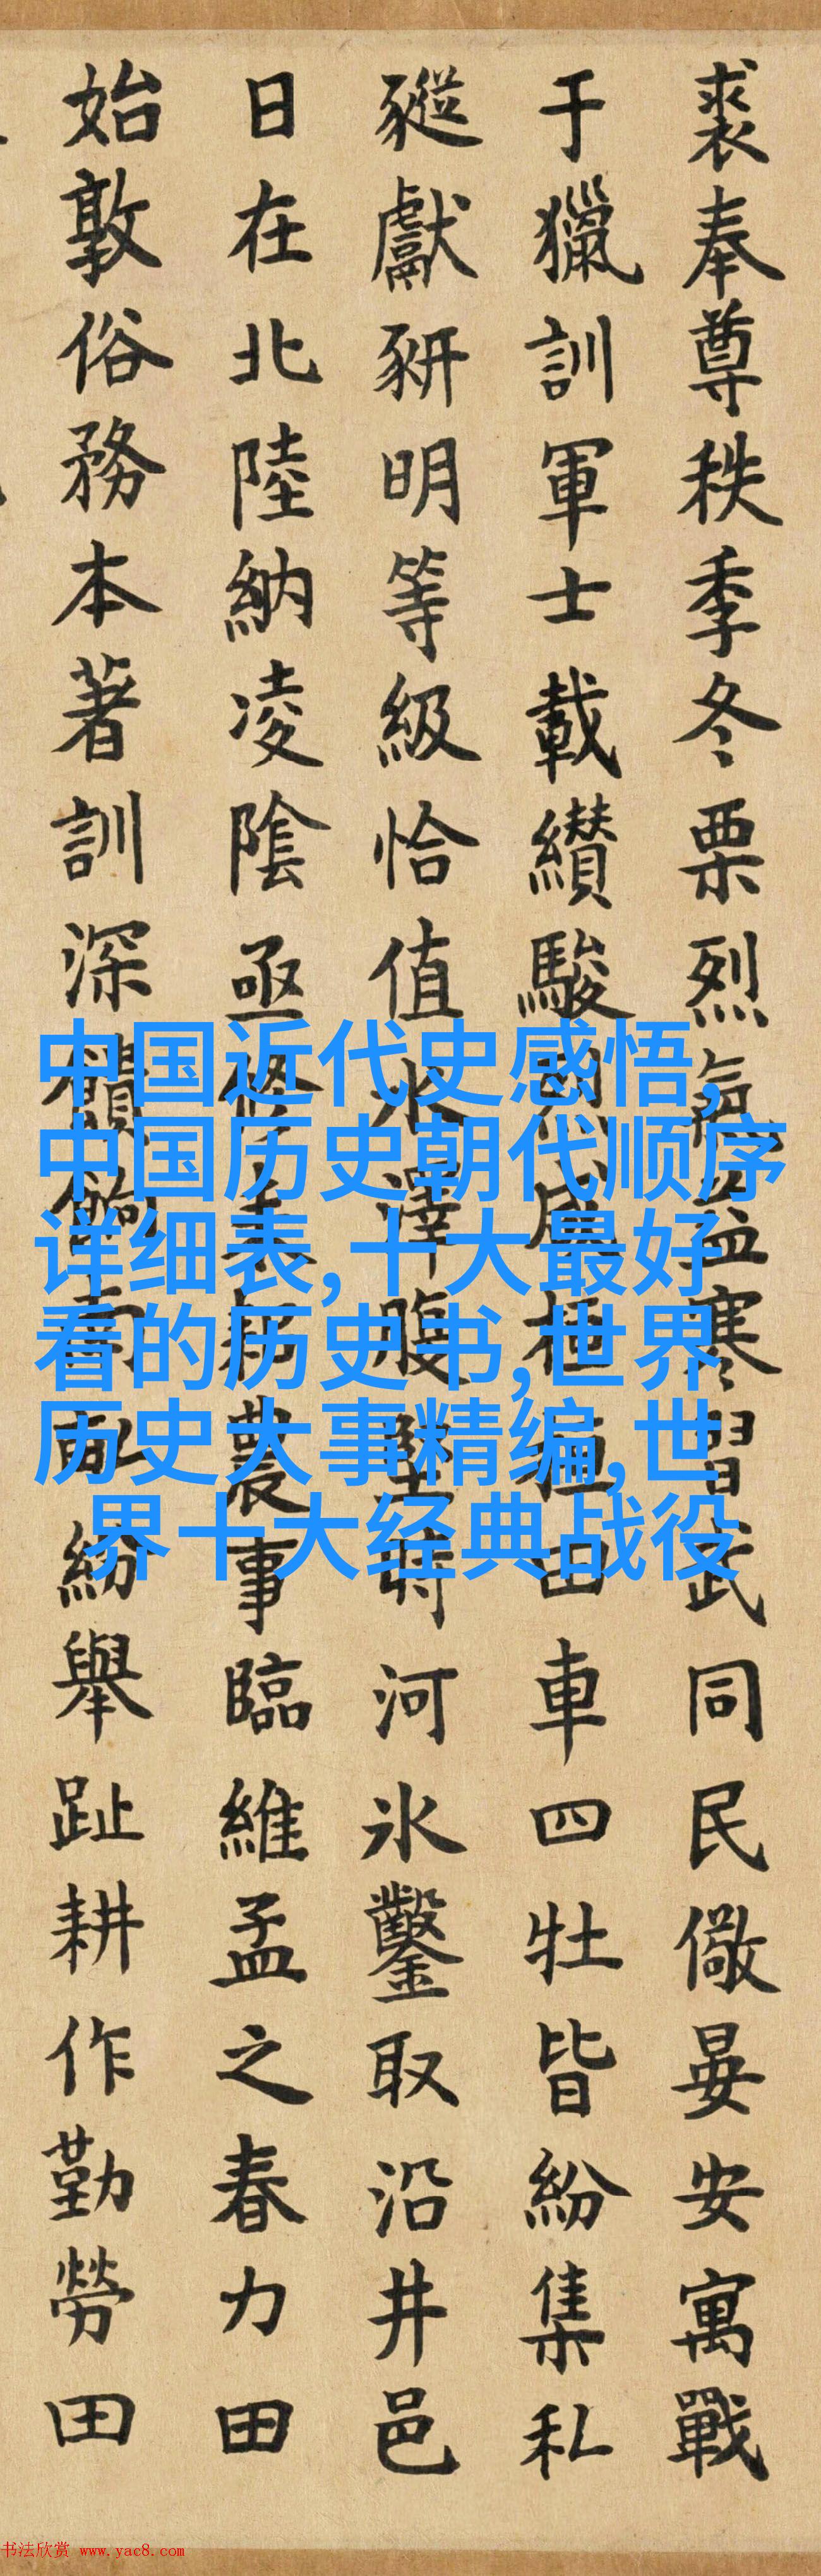 裘奉尊秩季冬栗烈氣益寒習武同民儆晏安寓戰
于獵訓軍士載纘駿極田車四牡皆紛集私
豵獻豜明等級恰值水澤腹堅時河氷鑿取沿井邑
日在北陸納凌陰亟修耒耜農事臨維孟之春力田
始敦俗務本著訓深饋餉南畝紛舉趾耕作勤勞田
中国近代史感悟,
中国历史朝代顺序
详细表,十大最好
看的历史书,世界
历史大事精编,世
界十大经典战役
书法欣赏 www.yac8.com